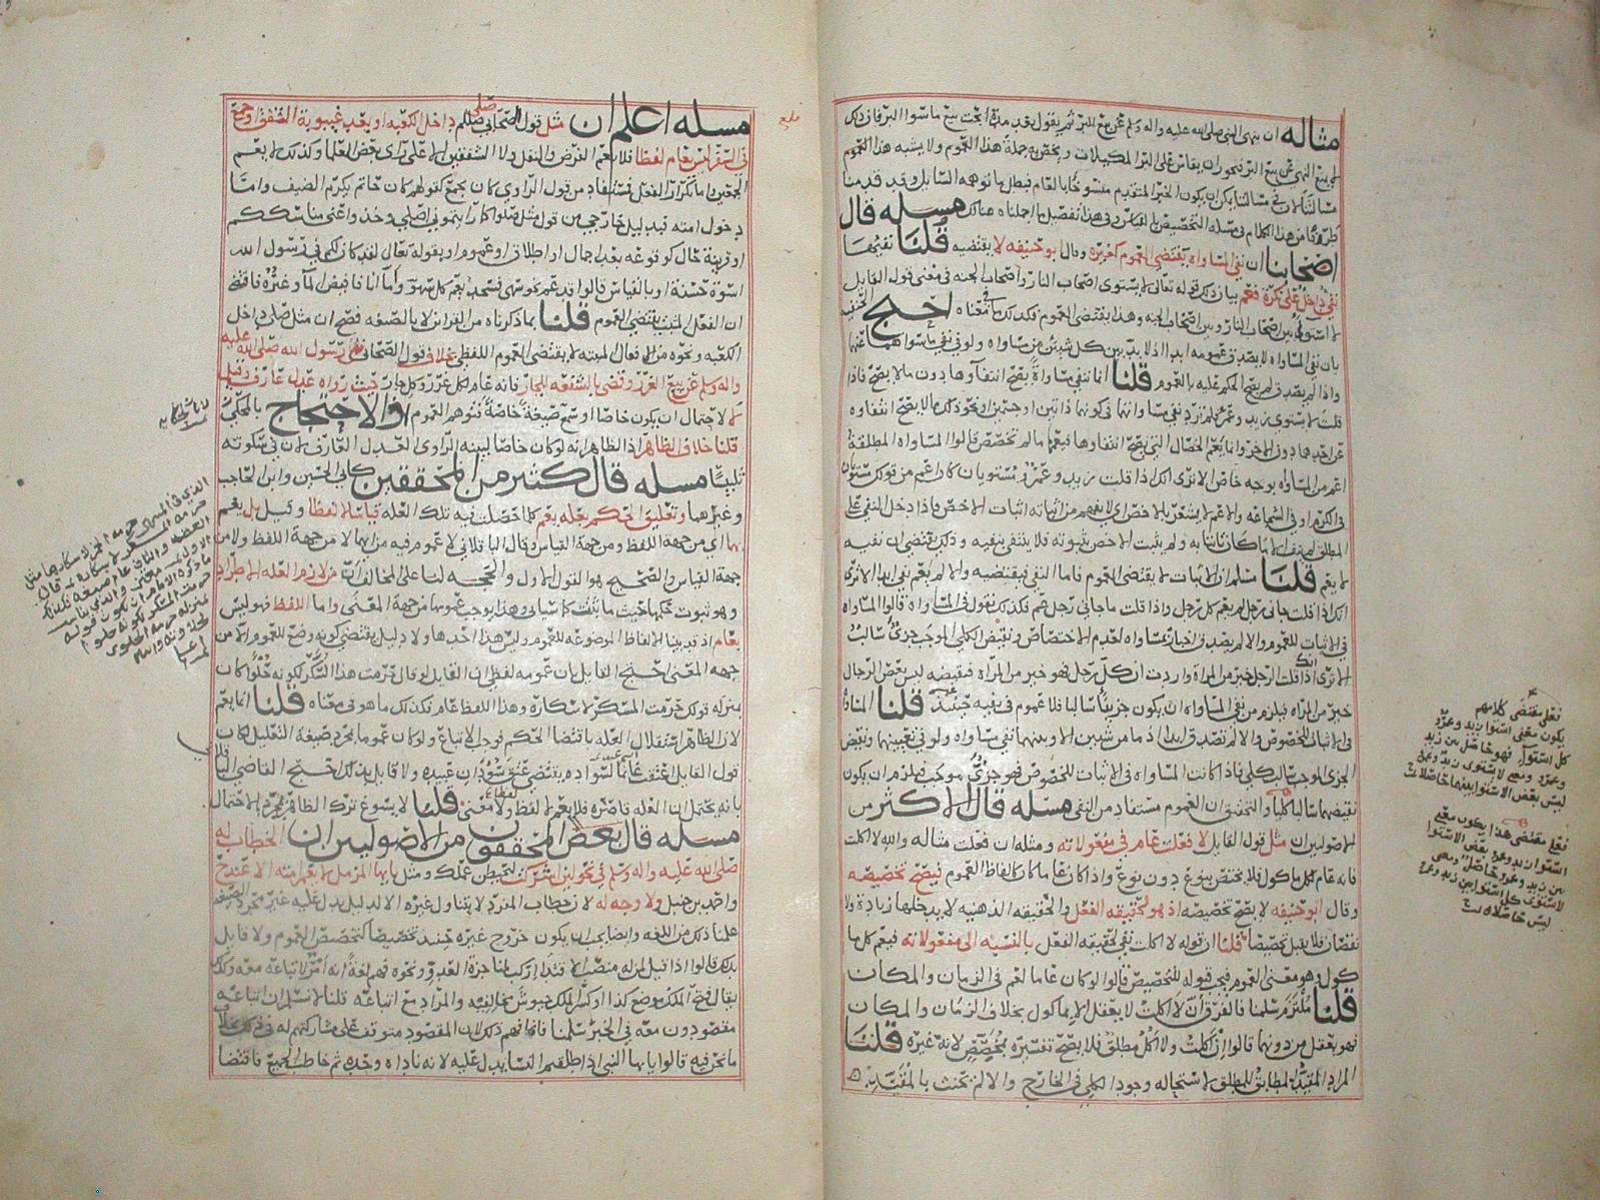 مثاله ان ينهى النبي صلى الله عليه واله وسلم عن بيع البر ثم يقول بعد مدة ابحت بيع ما سوا البر فان ذلك
لم يبح النهي عن بيع البر فيجوز ان يقاس على البر المكيلات ويخص به جملة هذا العموم ولا يشبه هذا العموم
مسالتنا لان في مسالتنا يمكن ان يكون الخبر المتقدم منسوخا بالعام فبطل ما توهمه السايل وقد قدمنا
طرفا من هذا الكلام في مسله التخصيص بالقياس وفي هذا تفصيل ما اجملناه هنالك مسله قال
اصحابنا ان نفي المساواه يقتضي العموم كغيره وقال ابو حنيفه لا يقتضيه قلنا نفيها
نفي داخل على نكرة فعم بيان ذلك قوله تعالى لا يستوى اصحاب النار واصحاب الجنه في معنى قول القايل
لا استوا بين اصحاب النار وبين اصحاب الجنه وهذا يقتضي العموم فكذلك ما في معناه احتج الحنفيه
بان نفي المساواه لا يصدق في عمومه ابدا اذ لا بد بين كل شيئين من مساواه ولو في نفي ما سواهما عنهما
واذا لم يصدق لم يصح الحكم عليه بالعموم قلنا انما ننفي مساواة يصح انتفاوها دون ما لا يصح فاذا
قلت لا يستوى زيد وعمرو لم نرد نفي مساواتهما في كونهما ذاتين او جسمين ونحو ذلك مما لا يصح انتفاوه
عن احدهما دون الاخر وانما يعم الخصال التي يصح انتفاوها فيعمها ما لم تخصص قالوا المساواه المطلقة
اعم من المساواه بوجه خاص الا ترى انك اذا قلت زيد وعمرو مستويان كان اعم من قولك مستويان
في الكرم او في الشجاعه والاعم لا يشعر بالاخص اي لا يفهم من اثباته اثبات الاخص فاذا دخل النفي على
قلنا مسلم ان الاثبات لا يقتضي العموم فاما النفي فيقتضيه والا لم يعم نفي ابدا الا ترى
انك اذا قلت جاني رجل لم يعم كل رجل واذا قلت ما جاني رجل عم فكذلك نقول في المساواه قالوا المساواه
في الاثبات للعموم والا لم يصدق اخبار بمساواه لعدم الاختصاص ونقيض الكلي الموجب جزئي سالب
الا ترى انك اذا قلت الرجل خير من المراة واردت ان كل رجل فهو خير من المراة فنقيضه ليس بعض الرجال
خير من المراه فيلزم من نفي المساواه ان يكون جزئيا سالبا فلا عموم في نفيه حينئذ قلنا المساواة
في الاثبات للخصوص والا لم تصدق ابدا اذ ما من شيئين الا وبينهما نفي مساواه ولو في تعيينهما ونقيض
الجزئ الموجب سالب كلي فاذا كانت المساواه في الاثبات للخصوص فهو جزئي موجب فيلزم ان يكون
نقيضها سالبا كليا والتحقيق ان العموم مستفاد من النفي مسله قال الاكثر من
الاصوليين ان مثل قول القايل لا فعلت عام في مفعولاته ومثله ان فعلت مثاله والله لا اكلت
فانه عام لكل ماكول فلا يختص بنوع دون نوع واذا كان عاما كان كالفاظ العموم فيصح تخصيصه
وقال ابو حنيفه لا يصح تخصيصه اذ هو لحقيقه الفعل والحقيقه الذهنيه لا يدخلها زيادة ولا
نقصان فلا يقبل تخصيصا قلنا ان قوله لا اكلت نفي لحقيقه الفعل بالنسبه الى مفعولاته فيعم كل ما
كول وهو معنى العموم فيجب قبوله للتخصيص قالوا لو كان عاما لعم في الزمان والمكان
قلنا ملتزم سلمنا فالفرق ان لا اكلت لا يعقل الا بماكول بخلاف الزمان والمكان
فهو يعقل من دونهما قالوا ان اكلت ولا اكل مطلق فلا يصح تفسيره بمخصص لانه غيره قلنا
المراد المقيد المطابق للمطلق لاستحاله وجود الكلي في الخارج والا لم يحنث بالمقيد
نعلى مقتضى كلامهم
يكون معنى استوا زيد وعمرو
كل استوا فهو حاصل بين زيد
وعمرو ومعنى لا يستوى زيد وعمرو
ليس بعض الاستوا بينهما حاصلا
نعلى مقتضى هذا يكون معنى
استوا زيد وعمرو بعض الاستوا
بين زيد وعمرو حاصل ومعنى
لا يستوى كل استوا بين زيد وعمرو
ليس حاصلا
مسله اعلم ان مثل قول الصحابي صلى صلعم داخل الكعبه او بعد غيبوبة الشفق او جمع
في السفر ليس بعام لفظا فلا يعم الفرض والنفل ولا الشفقين الا على راى بعض العلما وكذلك لا يعم
الجمعين واما تكرار الفعل فمستفاد من قول الراوي كان يجمع كقولهم كان حاتم يكرم الضيف واما
دخول امته فبدليل خارجي من قول مثل صلوا كما رايتموني اصلي وخذوا عني مناسككم
او قرينة حال كوقوعه بعد اجمال او اطلاق او عموم او بقوله تعالى لقد كان لكم في رسول الله
اسوة حسنة او بالقياس قالوا قد عم نحو سهى فسجد بعم كل سهو واما انا فافيض الما وغيره فاقتضى
ان الفعل المثبت يقتضي العموم قلنا بما ذكرناه من القراين لا بالصيغه فصح ان مثل صلى داخل
الكعبه ونحوه من الافعال المبته لا يقتضي العموم اللفظي بخلاف قول الصحابي نهى رسول الله صلى الله عليه
واله وسلم عن بيع الغرر وقضى بالشفعه للجار فانه عام لكل غرر وكل جار حيث رواه عدل عارف وقيل
لا لاحتمال ان يكون خاصا او سمع صيغة خاصة فتوهم العموم والاحتجاج بالمحكي
قلنا خلاف الظاهر اذ الظاهر انه لو كان خاصا لبينه الراوى العدل العارف لان في سكوته
تلبيسا مسله قال كثير من المحققين كابي الحسين وابن الحاجب
وغيرهما وتعليق الحكم بعله يعم كلما حصلت فيه تلك العله قياسا لا لفظا وقيل بل يعم
بهما اي من جهة اللفظ ومن جهة القياس وقال الباقلاني لا عموم فيه من ايهما لا من جهة اللفظ ولا من
جهة القياس والصحيح هو القول الاول والحجه لنا على المخالف ان من لازم العله الاطراد
وهو ثبوت حكمها حيث ما ثبتت كما سياتي وهذا يوجب عمومها من جهة المعنى واما اللفظ فهو ليس
بعام اذ قد بينا الالفاظ الموضوعه للعموم وليس هذا احدها ولا دليل يقتضي كونه وضع للعموم الا من
جهه المعنى احتج القايل بان عمومه لفظي ان القايل لو قال حرمت هذا السكر لكونه حلوا كان
بمنزله قولك حرمت المسكر لاسكاره وهذا اللفظ عام فكذلك ما هو في معناه قلنا انما يعم
لان الظاهر استقلال العله باقتضا الحكم فوجب الاتباع ولو كان عموما بمجرد صيغة التعليل لكان
قول القايل اعتقت غانما لسواده يقتضي عتق سودان عبيده ولا قايل بذلك احتج القاضي الباقلاني
بانه يحتمل ان العله قاصره فلا يعم لا لفظ ولا معنى قلنا لا يسوغ ترك الظاهر لمجرد الاحتمال
مسله قال بعض المحققون من الاصوليين ان الخطاب له
صلى الله عليه واله وسلم في نحو لئن اشركت ليحبطن عملك ومثل يا ايها المزمل لا يعم امته الا عند ح
واحمد بن حنبل ولا وجه له لان خطاب المفرد لا يتناول غيره الا لدليل يدل عليه غير مجرد الصيغه
علمنا ذلك من اللغه وايضا يجب ان يكون خروج غيره حينئذ تخصيصا كتخصيص العموم ولا قايل
بذلك قالوا اذا قيل لمن له منصب الاقتدا اركب لمناجزة العدو ونحوه فهم لغة انه امر لاتباعه معه وكذلك
يقال فتح الملك موضع كذا او كسر الملك جيوش مخالفيه والمراد مع اتباعه قلنا لا نسلم ان اتباعه
مقصودون معه في الخبر سلمنا فانما فهم ذلك لان المقصود متوقف على مشاركتهم له في ذلك بخلاف
ما نحن فيه قالوا يا ايها النبي اذا طلقتم النسا يدل عليه لانه ناداه وحده ثم خاطب الجميع فاقتضا